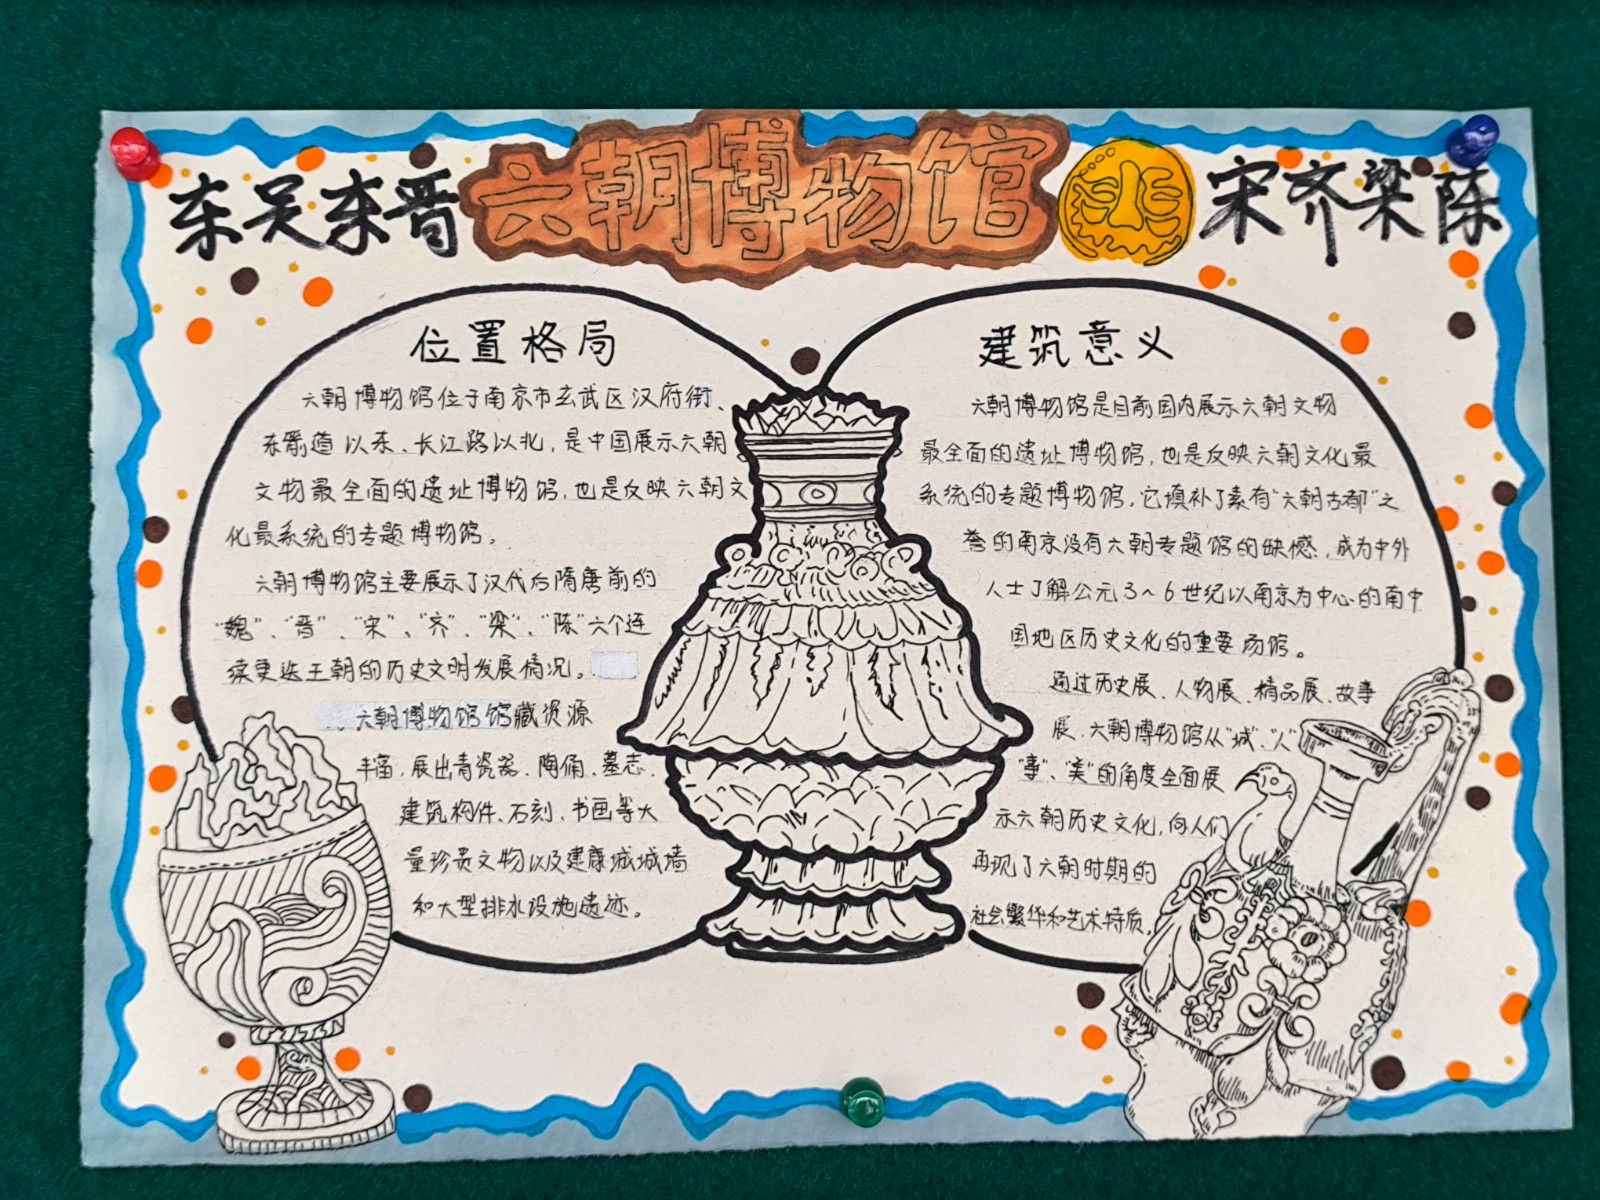 东吴东晋
六朝博物馆
宋齐梁陈
位置格局
六朝博物馆位于南京市玄武区汉府街、
东箭道以东、长江路以北，是中国展示六朝
文物最全面的遗址博物馆，也是反映六朝文
化最系统的专题博物馆。
六朝博物馆主要展示了汉代后隋唐前的
“魏”、“晋”、“宋”、“齐”、“梁”、“陈”六个连
续更迭王朝的历史文明发展情况。
六朝博物馆馆藏资源
丰富，展出青瓷器、陶俑、墓志、
建筑构件、石刻、书画等大
量珍贵文物以及建康城城墙
和大型排水设施遗迹。
建筑意义
六朝博物馆是目前国内展示六朝文物
最全面的遗址博物馆，也是反映六朝文化最
系统的专题博物馆，它填补了素有“六朝古都”之
誉的南京没有六朝专题馆的缺憾，成为中外
人士了解公元3～6世纪以南京为中心的南中
国地区历史文化的重要场馆。
通过历史展、人物展、精品展、故事
展，六朝博物馆从“城”、“人”
“事”、“美”的角度全面展
示六朝历史文化，向人们
再现了六朝时期的
社会繁华和艺术特质。